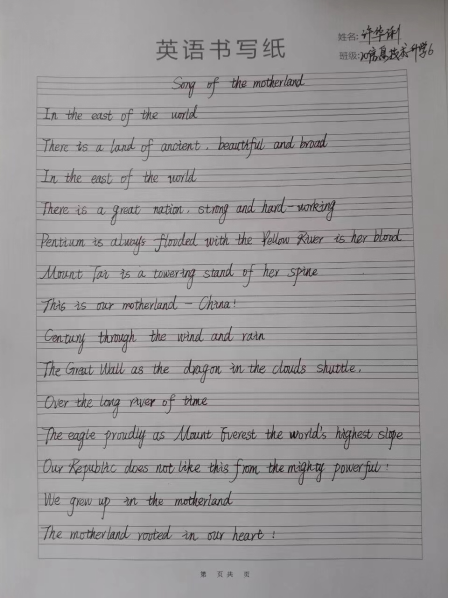 姓名: 许华俐
英语书写纸
班级:
Song of the motherland
In the east of the world
There is a land of ancient, beautiful and broad
In the east of the world
There is a great nation, strong and hard-working
Pentium is always flooded with the Yellow River is her blood
Mount Tai is a towering stand of her spine
This is our motherland - China!
Century through the wind and rain
The Great Wall as the dragon in the clouds shuttle.
Over the long river of time
The eagle proudly as Mount Everest the world's highest slope
Our Republic does not like this from the mighty powerful!
We grew up in the motherland
The motherland rooted in our heart!
第 页 共 页